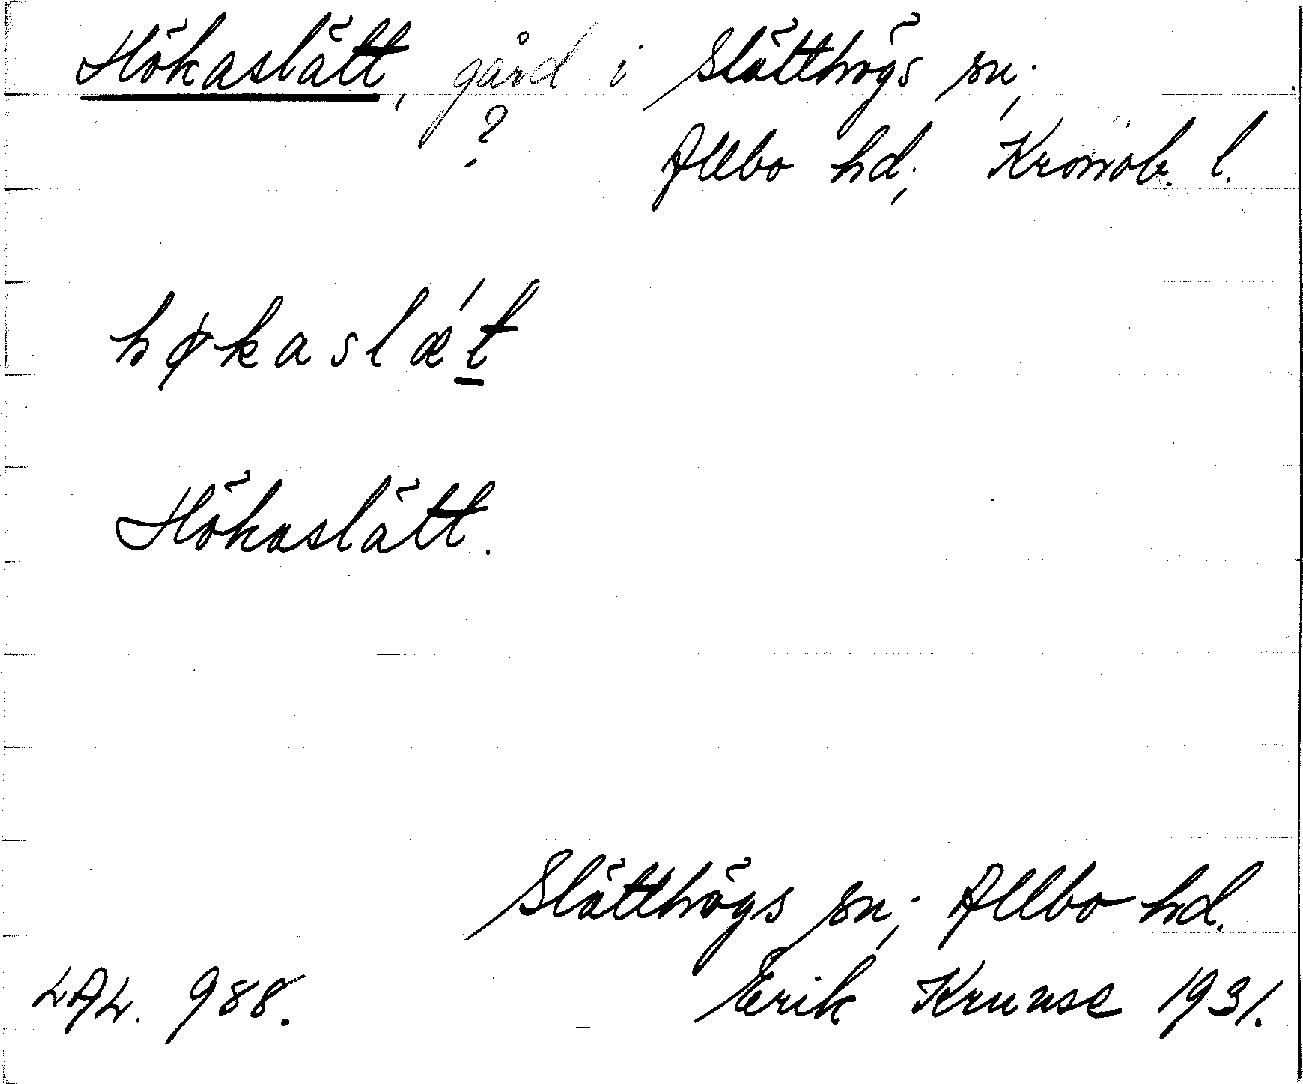 Hökaslätt, gård i Slätthögs sn;
? Allbo hd; Kronob. l.
høkaslǽt
Hökaslätt.
Slätthögs sn; Allbo hd.
LAL. 988. Erik Kruuse 1931.